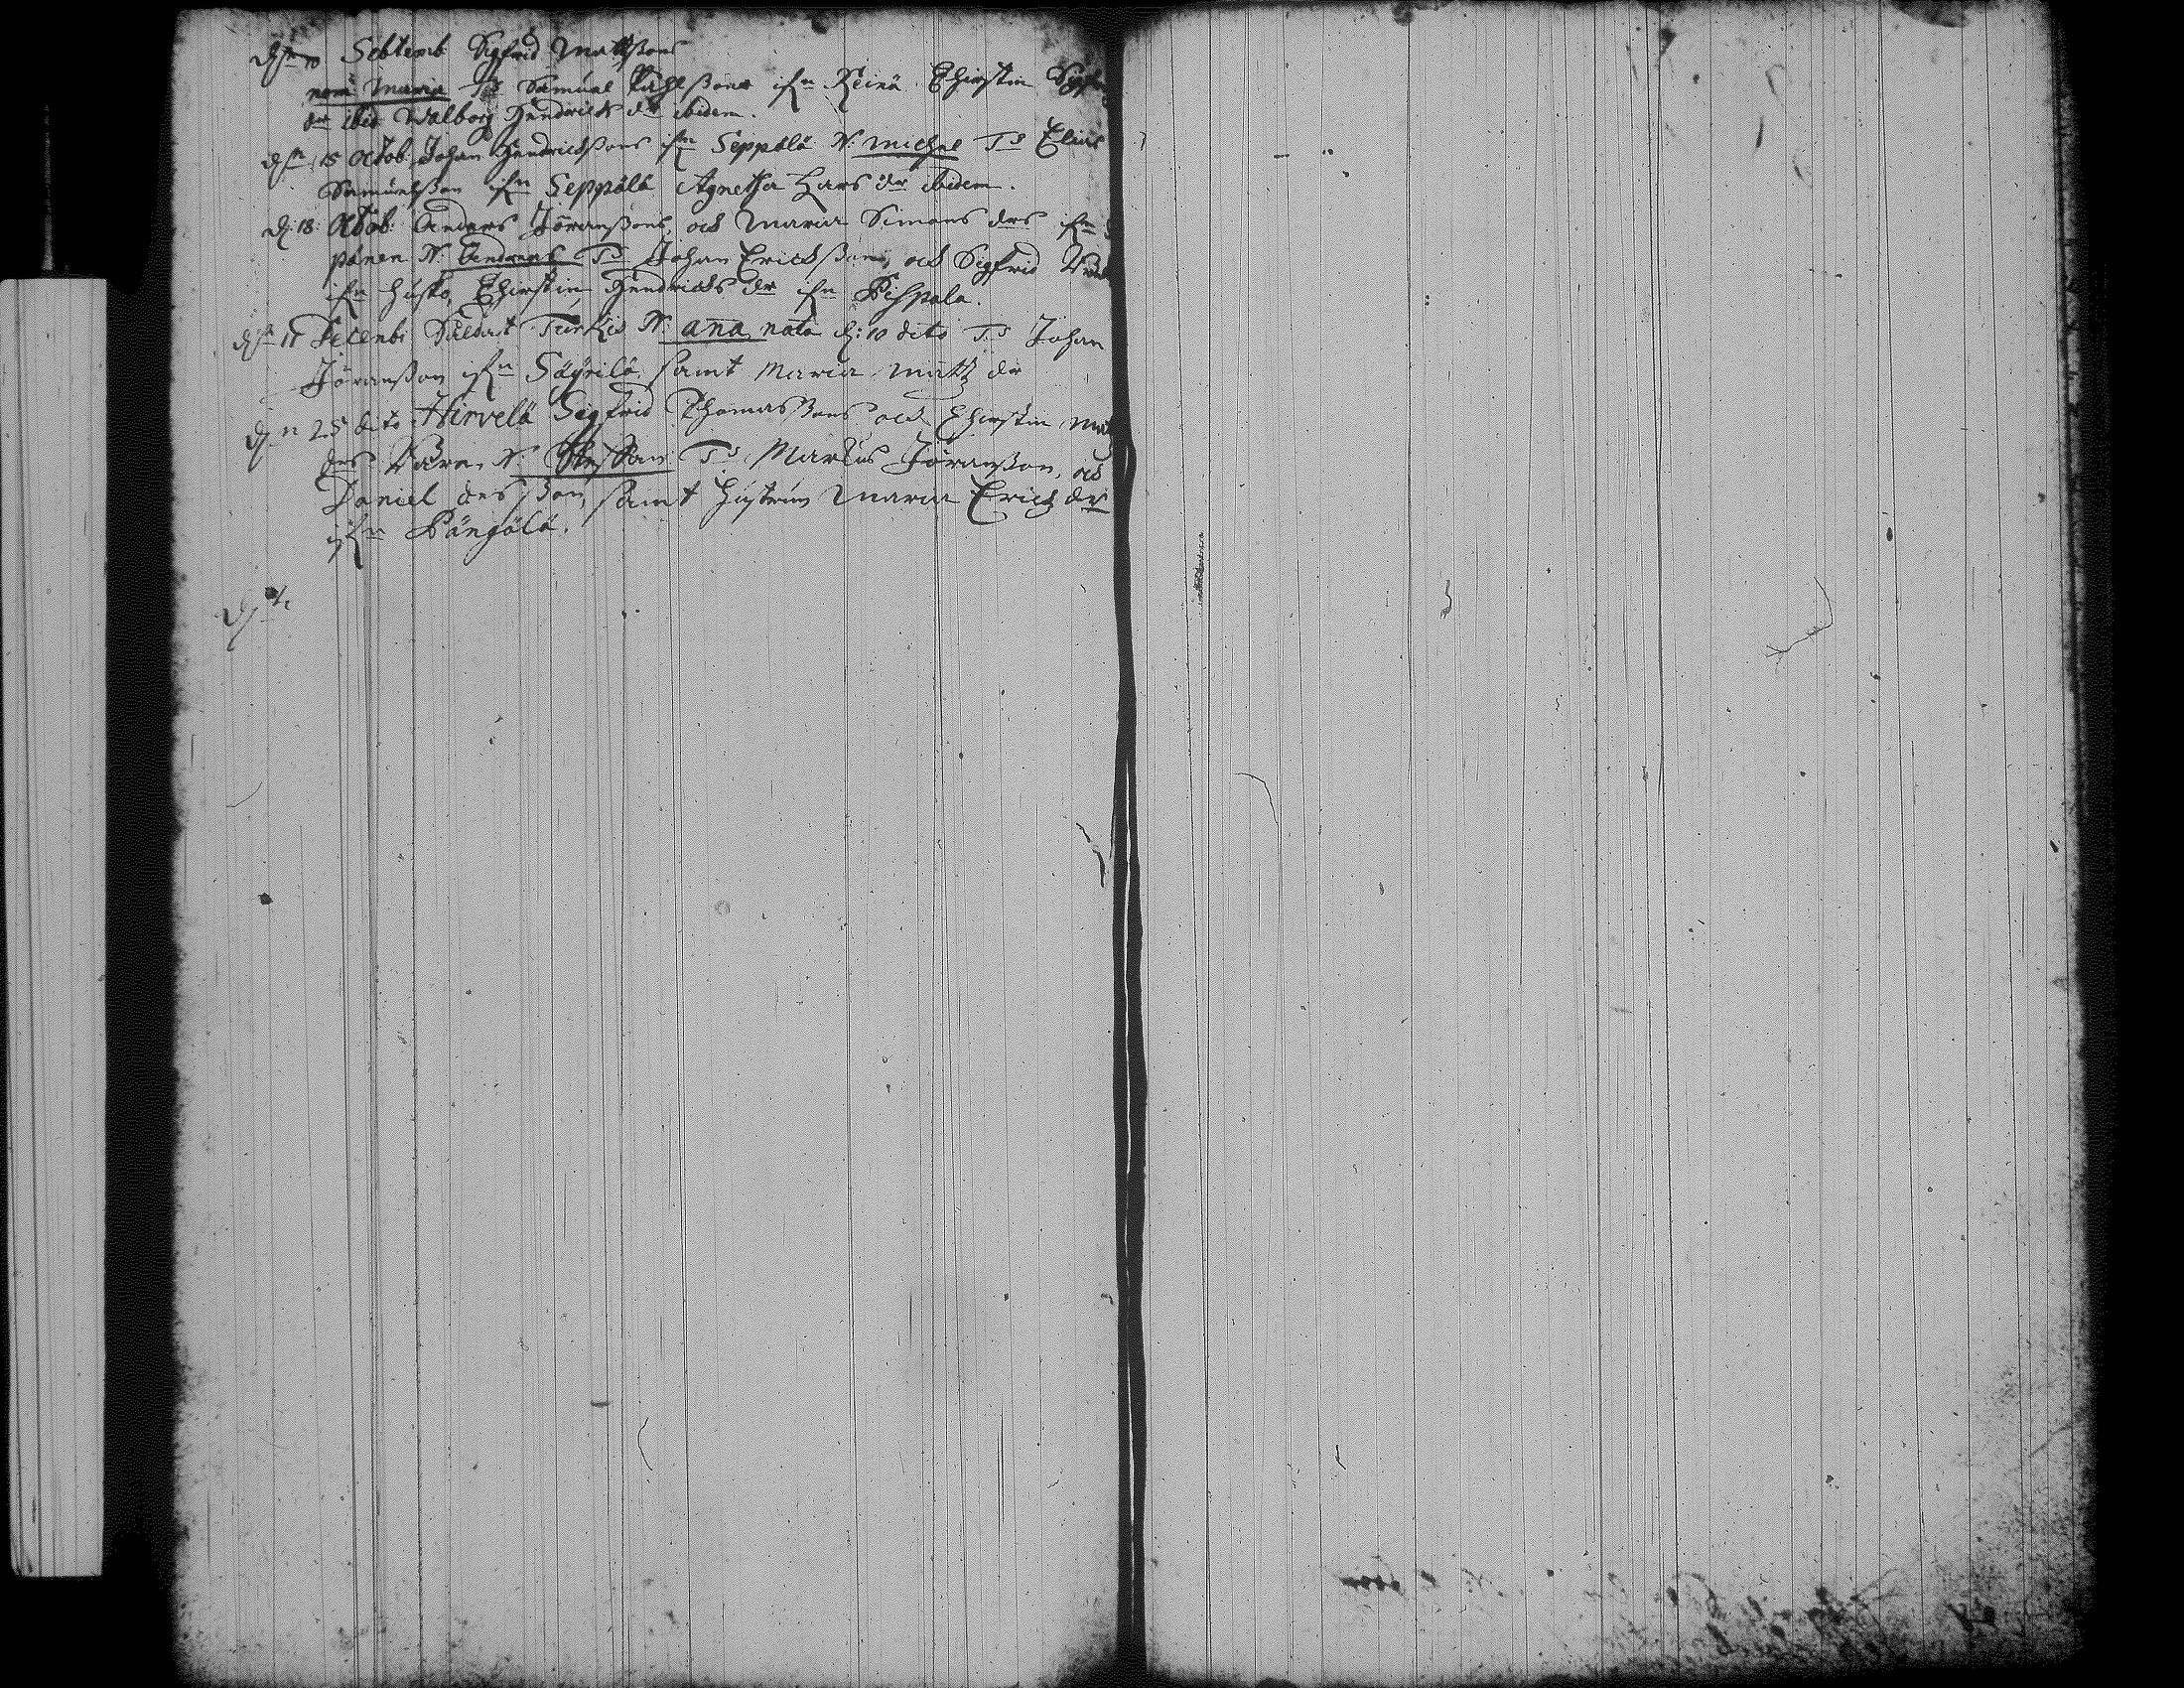 d. 10 Sebtemb Sigfrid Mattßons
nom Maria Ts Samuel ifn Reinä Chirstin Sigf
dr ibid Walborg Hendricks dr ibidem.
dn 15 Octob. Johan Hendrichßons ifn Seppälä N: Michel Ts Elias
Samuelßon ifn Seppälä Agnetha Lars dr ibidem.
d: 18 Octob: Anders Jöranßons, och Maria Simons drs ifn
pänen N: Andreas Ts Johan Erichßon, och Sigfrid
ifn Husko, Chirstin Hendrichs dr ifn Pispala.
dn 17 Decenb: Turkis N: ana nata d: 10 dito Ts Johan
Jöranßon ifn Säyrilä, samt Maria Matz dr
dn 25 dito Hirvelä Sigfrid Thomaßons och Chirstin Matz
drs Barn N: Steffan Ts Markus Jöranßon, och
Daniel ßon, samt hustrun Maria Erichz dr
ifn Pängälä.
dn